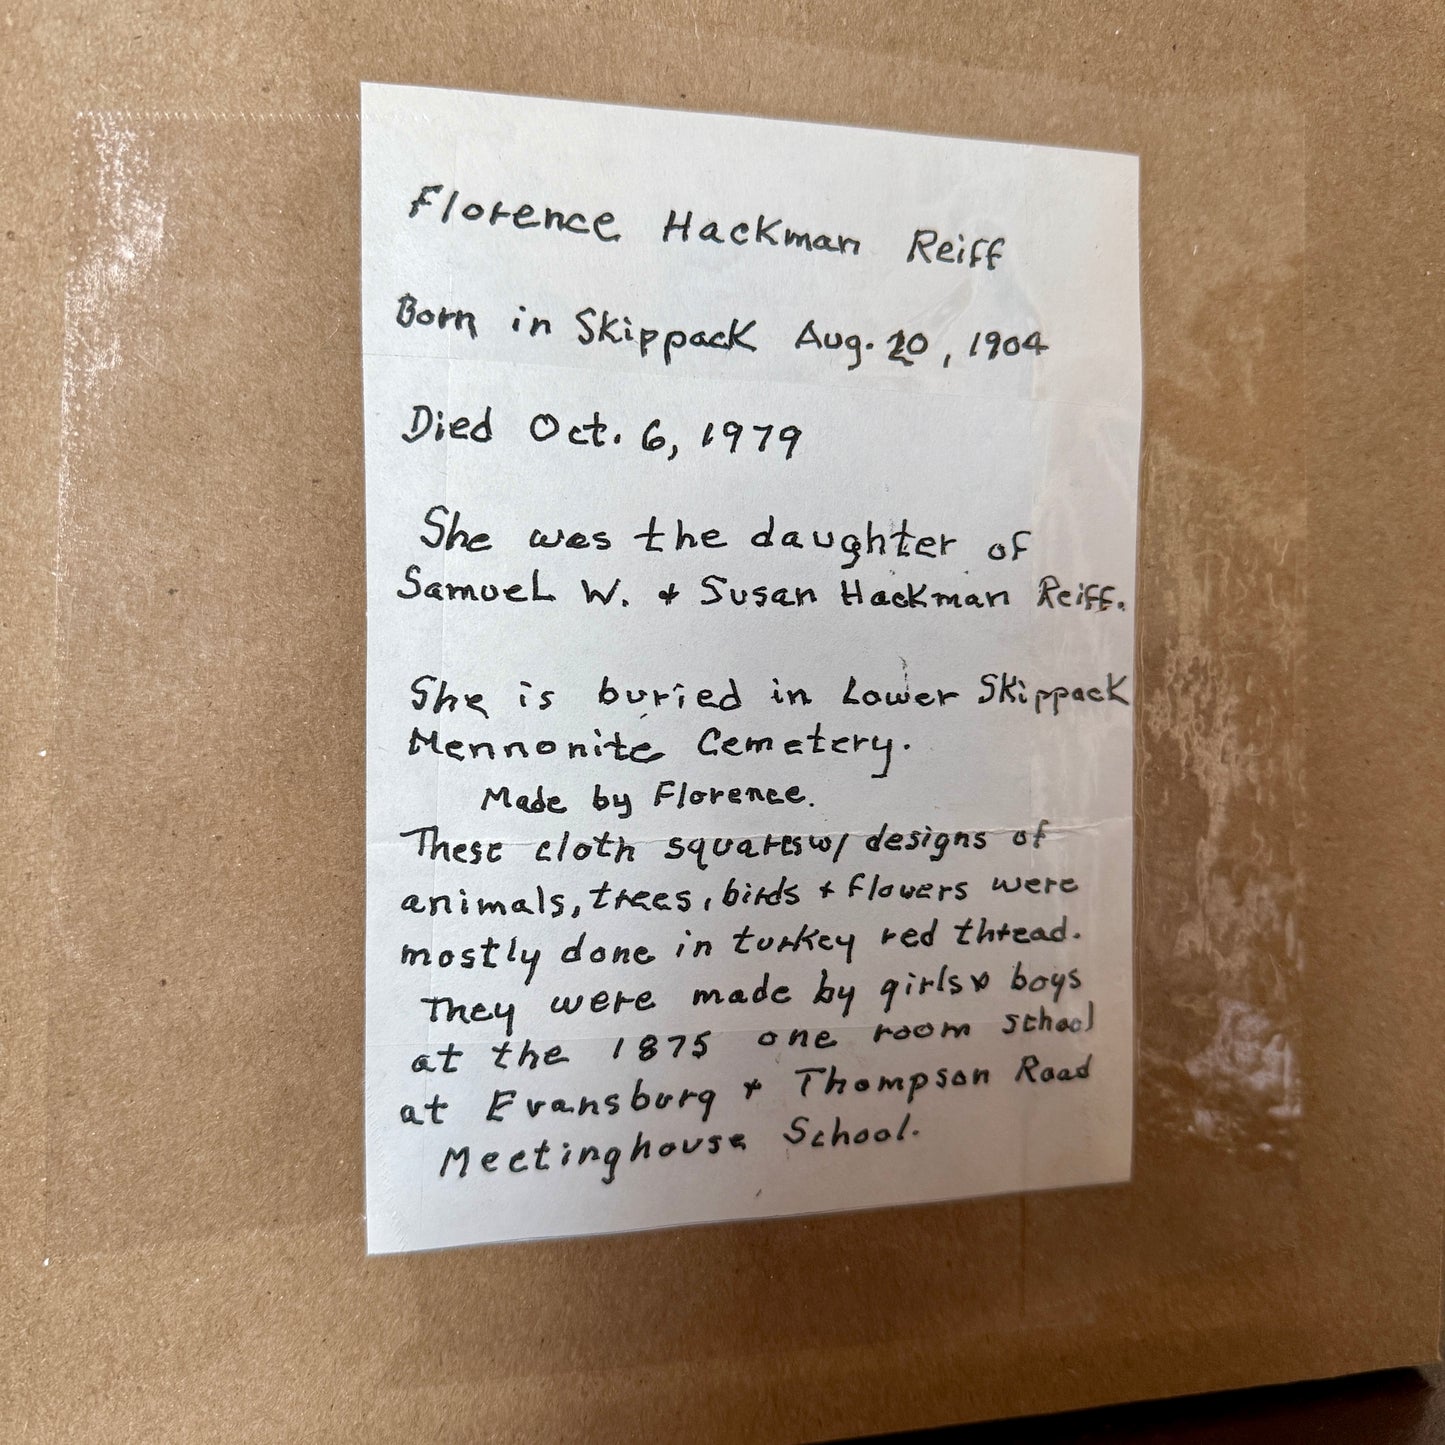 Florence Hackman Reiff
Born in Skippack Aug. 20, 1904
Died Oct. 6, 1979
She was the daughter of
Samuel W. + Susan Hackman Reiff.
She is buried in Lower Skippack
Mennonite Cemetery.
Made by Florence.
These cloth squares w/ designs of
animals, trees, birds + flowers were
mostly done in turkey red thread.
They were made by girls + boys
at the 1875 one room school
at Evansburg + Thompson Road
Meetinghouse School.